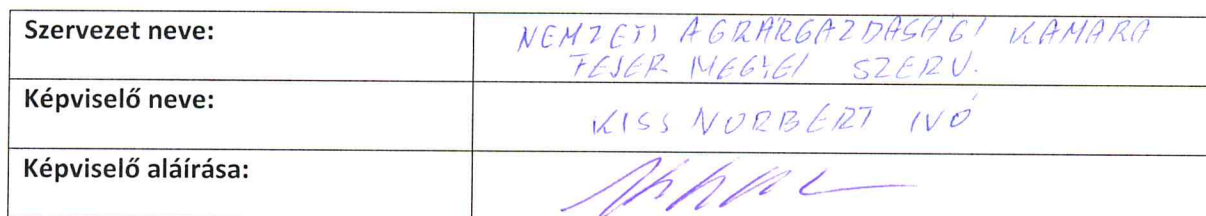 Szervezet neve: NEMZETI AGRÁRGAZDASÁGI KAMARA
FEJÉR MEGYEI SZERV.
Képviselő neve: KISS NORBERT IVÓ
Képviselő aláírása: